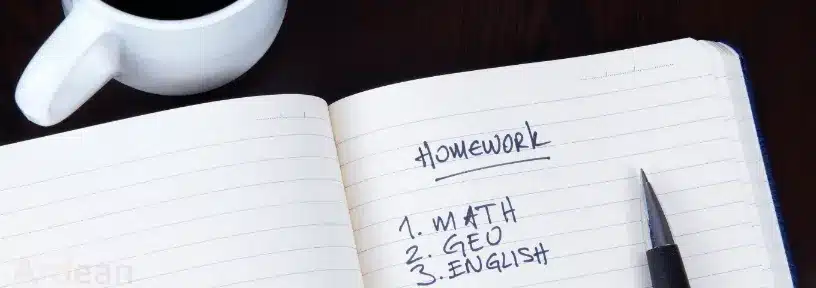 HOMEWORK
1. MATH
2. GEO
3. ENGLISH